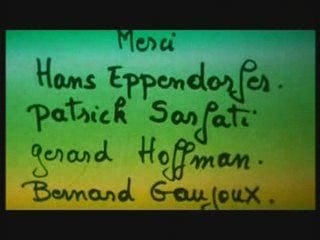 Merci
Hans Eppendorfer.
Patrick Sarfati
gerard Hoffman.
Bernard Gaujoux.